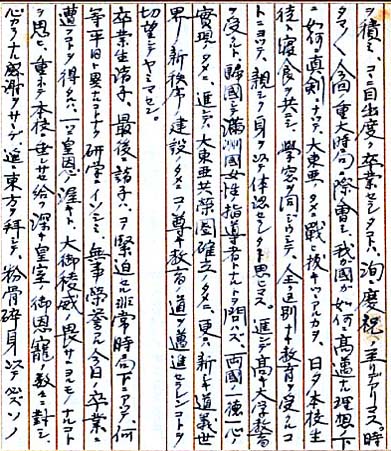 ヲ積ミ、コヽニ目出度ク卒業セレタルハ、洵ニ慶祝ノ至リデアリマス。時
タマ〳〵今回ノ重大時局ニ際會シ、我國ガ如何ニ高邁ナ理想ノ下
ニ如何ニ真剣ニナッテ、大東亜ノタメニ戦ヒ抜キツヽアルカヲ、日夕本校生
徒ト寝食ヲ共ニシ、學窓ヲ同ジウシテ、全ク區別ナキ教育ヲ受ケルコ
トニヨッテ、親シク身ヲ以テ体認セラレタト思ヒマス。進ンデ高キ大学教育
ヲ受ケルト、歸國シテ満洲國女性ノ指導者トナルトヲ問ハズ、両國一徳一心ノ
實現ノタメニ、進ンデハ大東亜共榮圏確立ノタメニ、更ニ新シキ道義世
界ノ新秩序ノ建設ノタメニコノ尊キ教育ノ道ニ邁進セラレンコトヲ
切望シテヤミマセン。
卒業生諸子、最後ニ諸子ハコノ緊迫セル非常時局下ニアッテ、何
等平日ト異ルコトナク研学ニイソシミ、無事榮誉アル今日ノ卒業ニ
遭フコトヲ得タルハ、一ツニ皇恩ノ涯ナキト、大御稜威ノ畏サニヨルモノナルコト
ヲ思ヒ、重ネテ本校ニ垂レサセ給フ深キ皇室ノ御恩寵ノ数々ニ對シ、
心カラナル感謝ヲサヽゲ、遙ニ東方ヲ拝シテ、粉骨砕身以テ必ズソノ